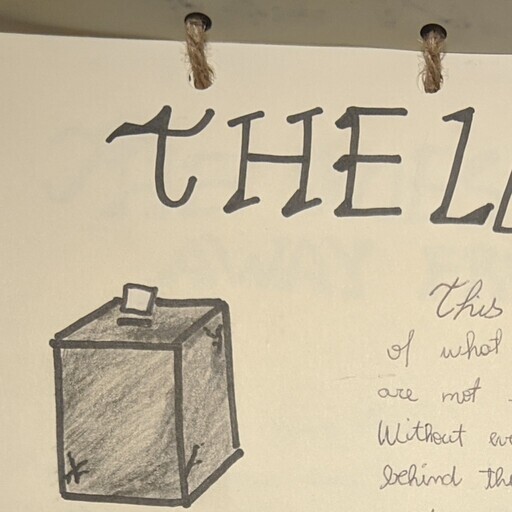 THE
This
of what
are not
Without
behind